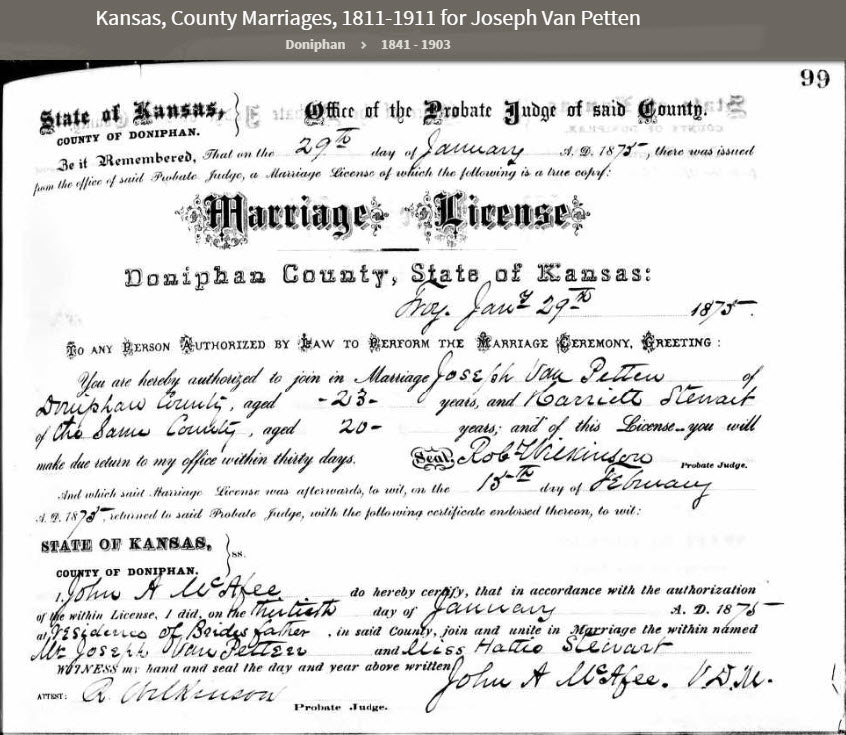 Kansas, County Marriages, 1811-1911 for Joseph Van Petten
Doniphan › 1841 - 1903
99
State of Kansas, } Office of the Probate Judge of said County.
COUNTY OF DONIPHAN.
Be it Remembered, That on the 29th day of January A. D. 1875, there was issued
from the office of said Probate Judge, a Marriage License of which the following is a true copy:
Marriage License
Doniphan County, State of Kansas:
Troy. Jany 29th 1875.
TO ANY PERSON AUTHORIZED BY LAW TO PERFORM THE MARRIAGE CEREMONY, GREETING:
You are hereby authorized to join in Marriage Joseph Van Petten of
Doniphan County, aged -23- years, and Harriett Stewart
of the Same County, aged 20- years; and of this License you will
make due return to my office within thirty days. Seal. Rob Wilkinson Probate Judge.
And which said Marriage License was afterwards, to wit, on the 15th day of February
A. D. 1875, returned to said Probate Judge, with the following certificate endorsed thereon, to wit:
STATE OF KANSAS, } ss.
COUNTY OF DONIPHAN.
I, John A McAfee do hereby certify, that in accordance with the authorization
of the within License, I did, on the thirtieth day of January A. D. 1875
at residence of Brides father, in said County, join and unite in Marriage the within named
Mr Joseph Van Petten and Miss Hattie Stewart
WITNESS my hand and seal the day and year above written,
John A McAfee. V.D.M.
ATTEST: R. Wilkinson
Probate Judge.